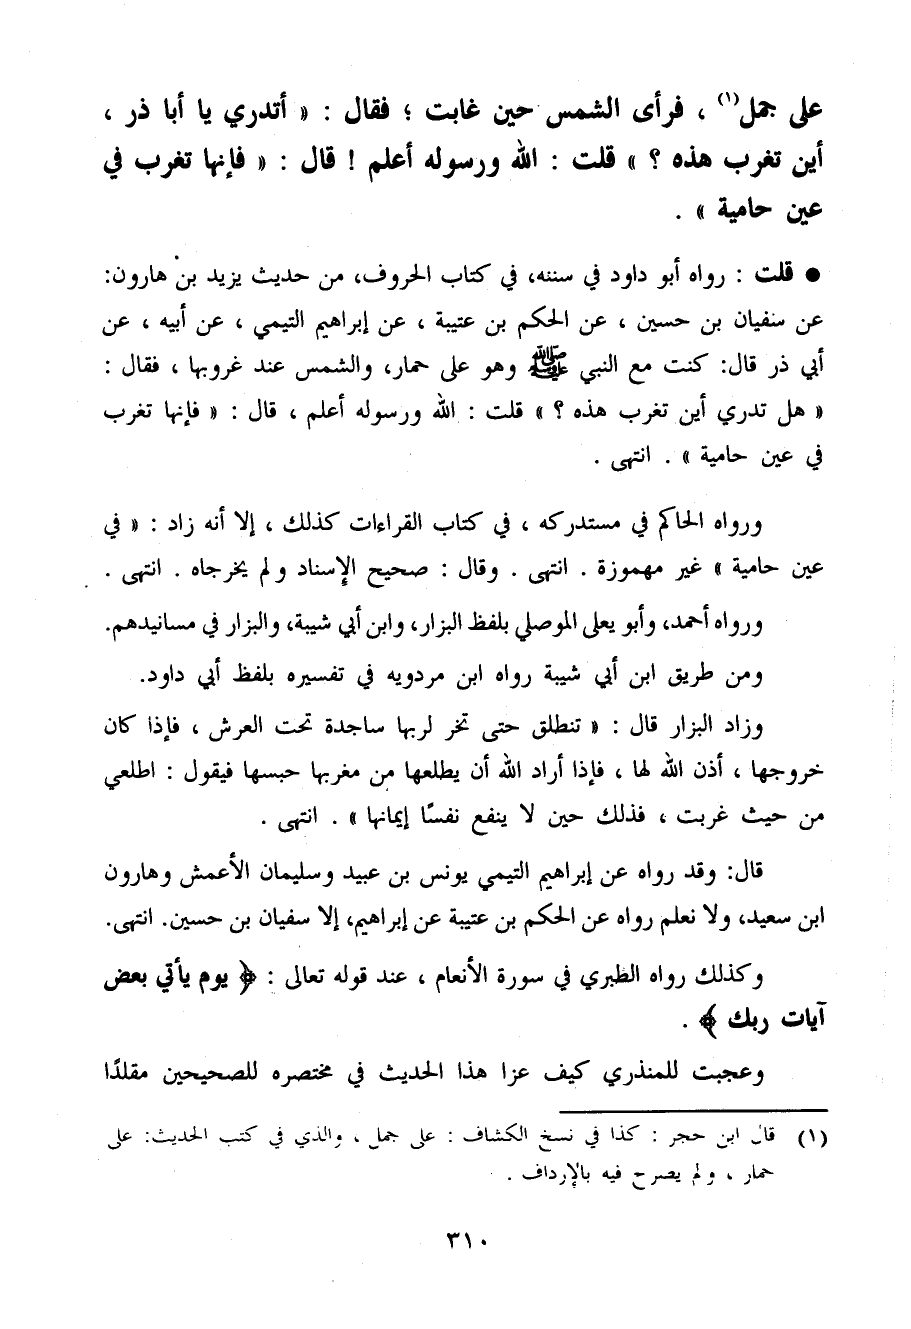 على جمل(١) ، فرأى الشمس حين غابت ؛ فقال : « أتدري يا أبا ذر ،
أين تغرب هذه ؟ » قلت : الله ورسوله أعلم ! قال : « فإنها تغرب في
عين حامية » .
● قلت : رواه أبو داود في سننه، في كتاب الحروف، من حديث يزيد بن هارون:
عن سفيان بن حسين ، عن الحكم بن عتيبة ، عن إبراهيم التيمي ، عن أبيه ، عن
أبي ذر قال: كنت مع النبي ﷺ وهو على حمار، والشمس عند غروبها ، فقال :
« هل تدري أين تغرب هذه ؟ » قلت : الله ورسوله أعلم ، قال : « فإنها تغرب
في عين حامية » . انتهى .
ورواه الحاكم في مستدركه ، في كتاب القراءات كذلك ، إلا أنه زاد : « في
عين حامية » غير مهموزة . انتهى . وقال : صحيح الإسناد ولم يخرجاه . انتهى .
ورواه أحمد، وأبو يعلى الموصلي بلفظ البزار، وابن أبي شيبة، والبزار في مسانيدهم.
ومن طريق ابن أبي شيبة رواه ابن مردويه في تفسيره بلفظ أبي داود.
وزاد البزار قال : « تنطلق حتى تخر لربها ساجدة تحت العرش ، فإذا كان
خروجها ، أذن الله لها ، فإذا أراد الله أن يطلعها من مغربها حبسها فيقول : اطلعي
من حيث غربت ، فذلك حين لا ينفع نفسًا إيمانها » . انتهى .
قال: وقد رواه عن إبراهيم التيمي يونس بن عبيد وسليمان الأعمش وهارون
ابن سعيد، ولا نعلم رواه عن الحكم بن عتيبة عن إبراهيم، إلا سفيان بن حسين. انتهى.
وكذلك رواه الطبري في سورة الأنعام ، عند قوله تعالى : ﴿ يوم يأتي بعض
آيات ربك ﴾ .
وعجبت للمنذري كيف عزا هذا الحديث في مختصره للصحيحين مقلدًا
(١) قال ابن حجر : كذا في نسخ الكشاف : على جمل ، والذي في كتب الحديث: على
حمار ، ولم يصرح فيه بالإرداف .
٣١٠